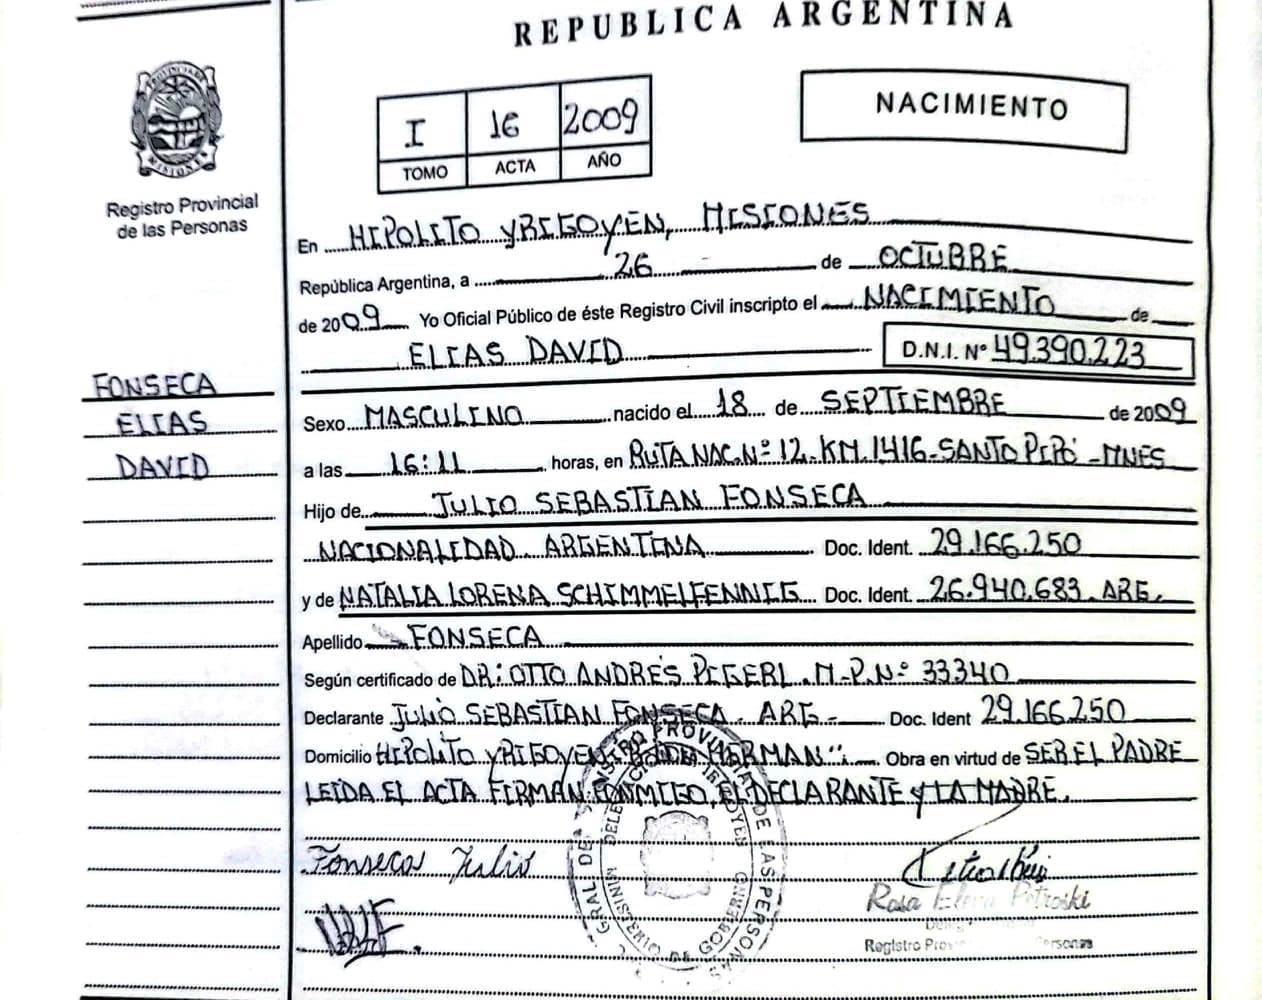 REPUBLICA ARGENTINA
PROVINCIA DE MISIONES
Registro Provincial
de las Personas
I 16 2009
TOMO ACTA AÑO
NACIMIENTO
En HIPOLITO YRIGOYEN, MISIONES
República Argentina, a 26 de OCTUBRE
de 2009 Yo Oficial Público de éste Registro Civil inscripto el NACIMIENTO de
ELIAS DAVID D.N.I. Nº 49.390.223
FONSECA
ELIAS
DAVID
Sexo MASCULINO nacido el 18 de SEPTIEMBRE de 2009
a las 16:11 horas, en RUTA NAC. Nº 12. KM. 1416-SANTO PIPÓ -MNES
Hijo de JULIO SEBASTIAN FONSECA
NACIONALIDAD ARGENTINA Doc. Ident. 29.166.250
y de NATALIA LORENA SCHIMMELFENNIG Doc. Ident. 26.940.683. ARG.
Apellido FONSECA
Según certificado de DR: OTTO ANDRÉS PIGERL. M.P.Nº 33340
Declarante JULIO SEBASTIAN FONSECA - ARG.- Doc. Ident 29.166.250
Domicilio HIPOLITO YRIGOYEN HERMAN" Obra en virtud de SER EL PADRE
LEIDA EL ACTA FIRMAN CONMIGO, EL DECLARANTE Y LA MADRE.
Fonseca Julio
Rosa Elena Petroski
Registro Personas
GRAL DE REGISTRO PROVINCIAL DE LAS PERSONAS
MINISTERIO DE GOBIERNO